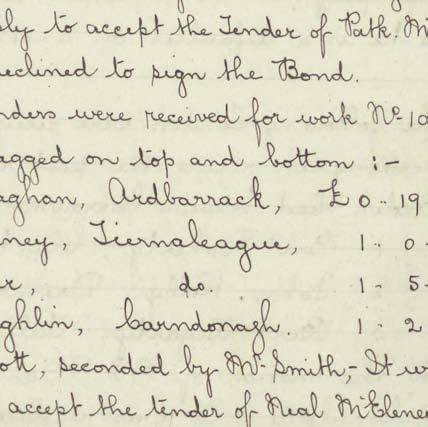 ly to accept the Tender of Patk. M
eclined to sign the Bond.
nders were received for work No 10
agged on top and bottom :-
aghan, Ardbarrack, £0 .. 19
ney, Tiernaleague, 1 .. 0
r do. 1 .. 5
ghlin, Carndonagh. 1 .. 2
ott, seconded by Mr. Smith,- It w
accept the tender of Neal McElene